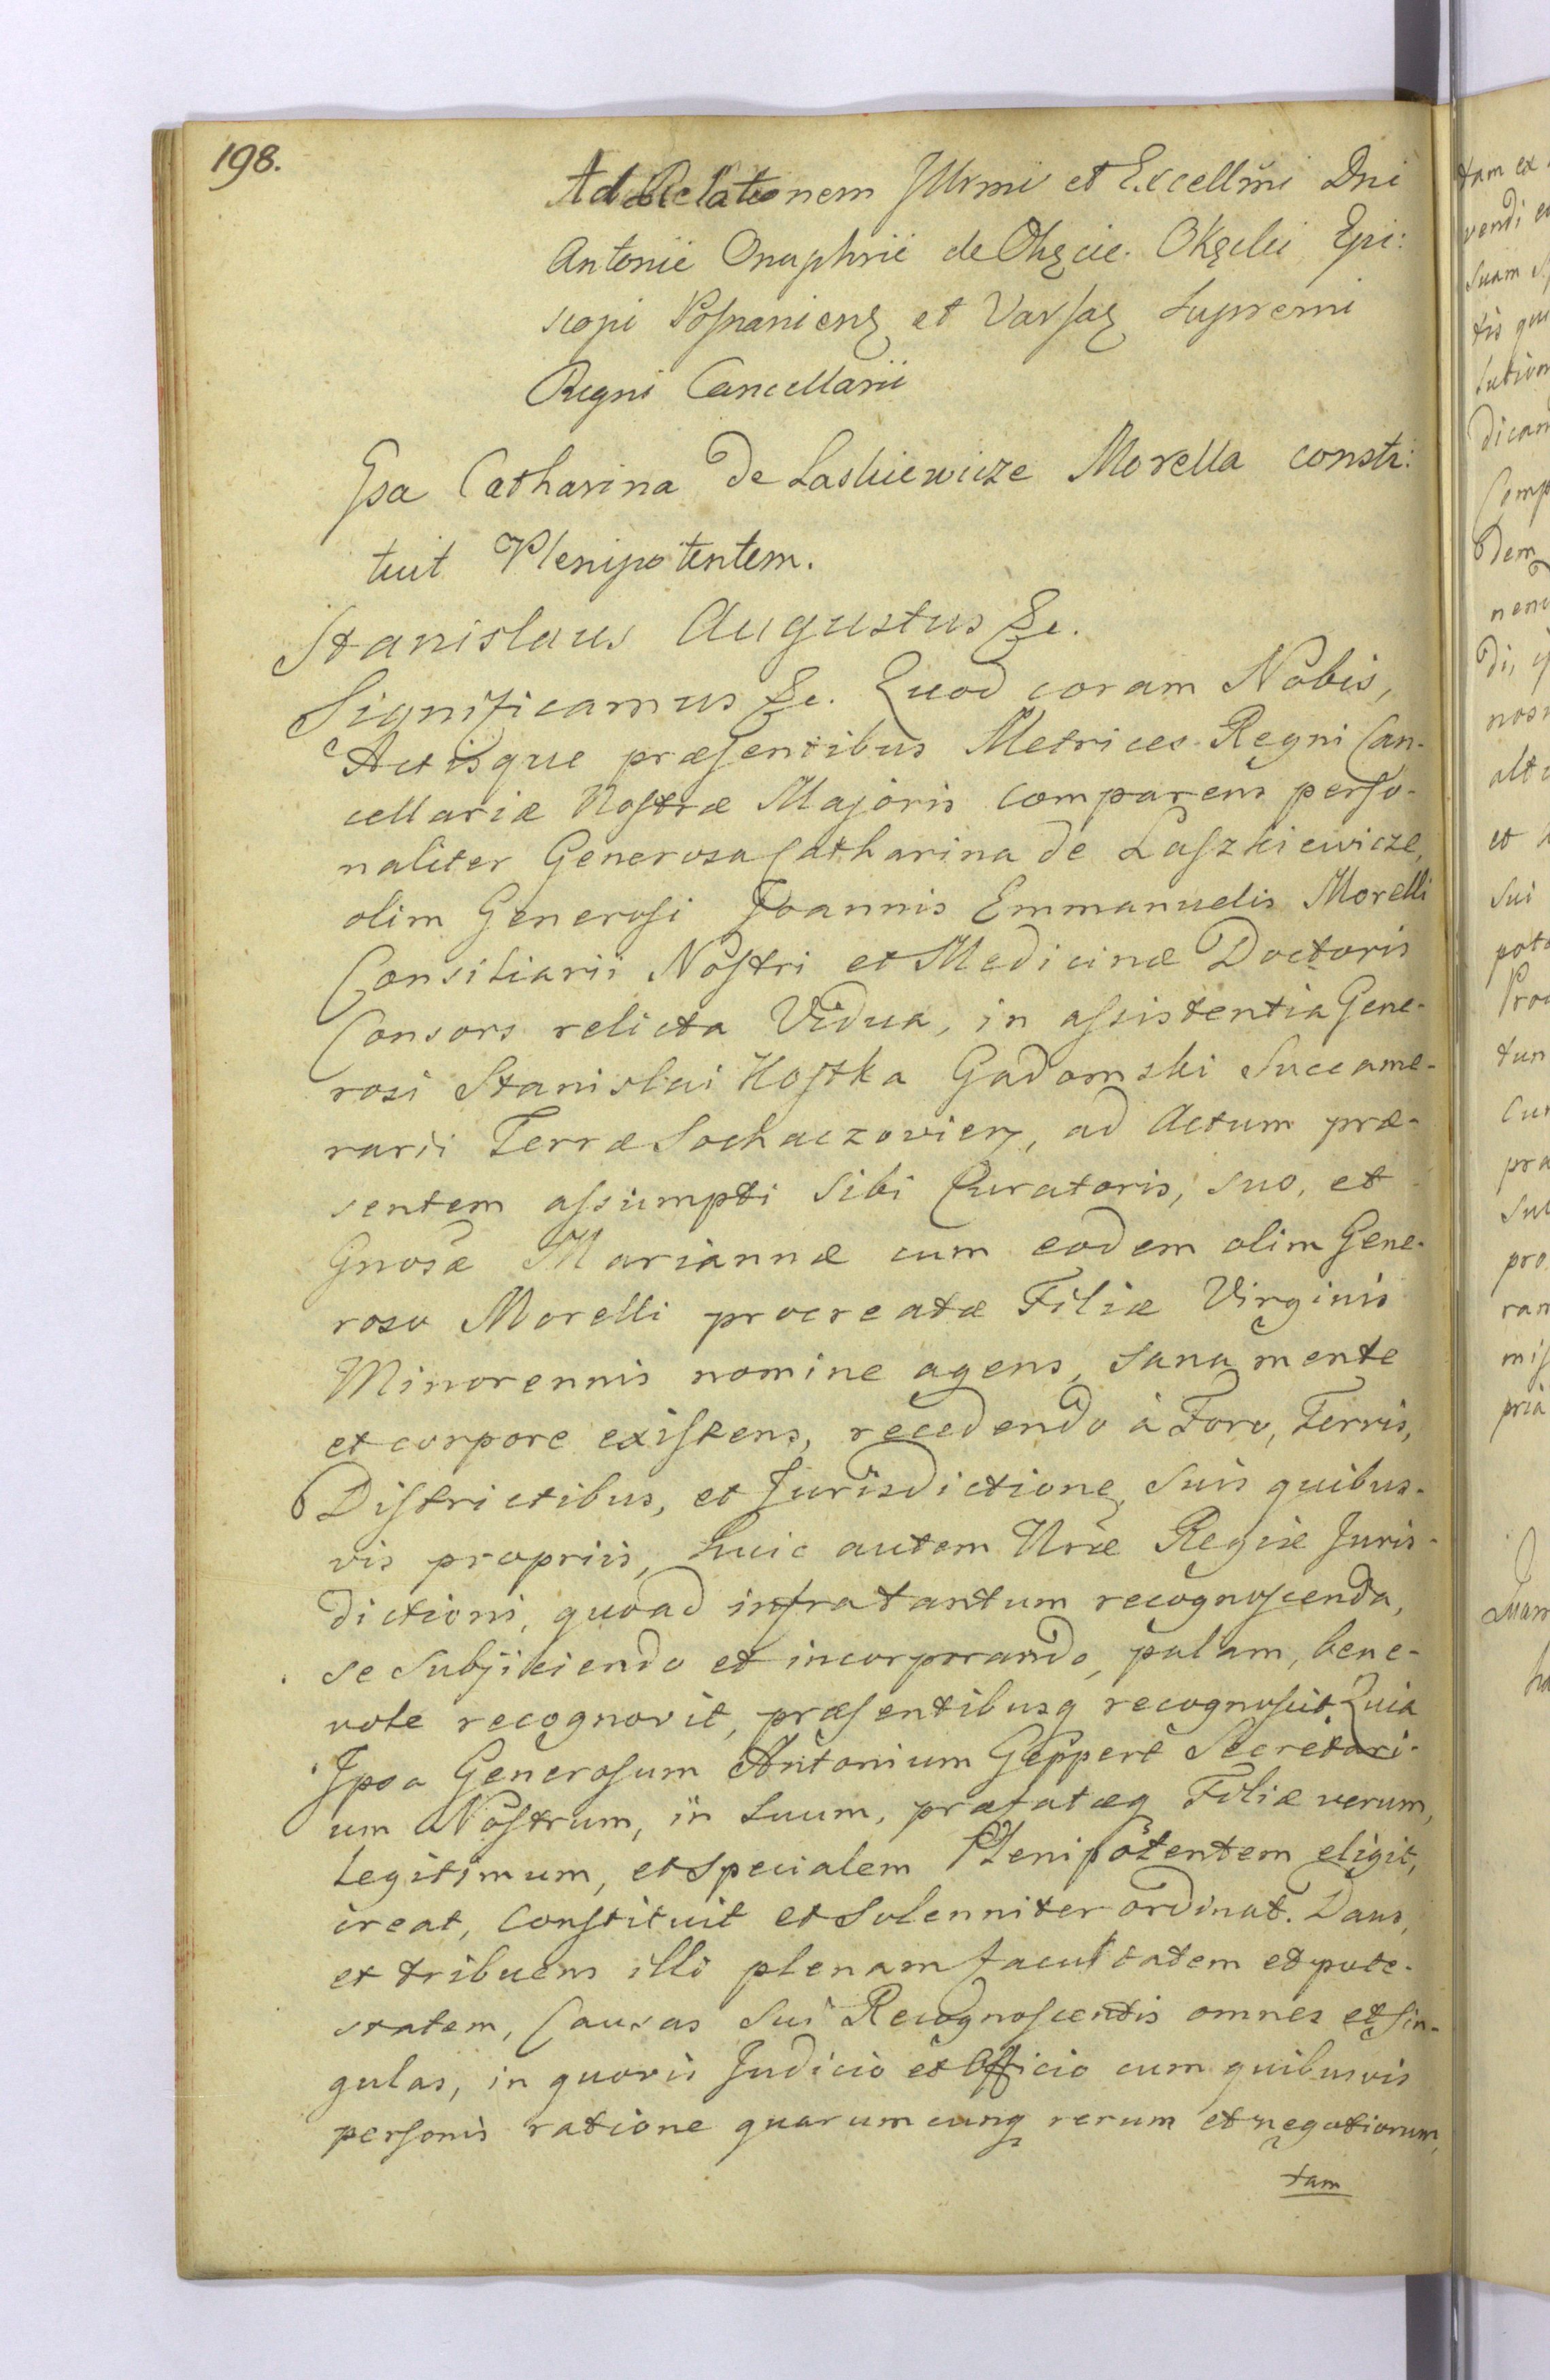 198.
Ad Relationem Jllrmi et Excellmi Dni
Antonii Onuphrii de Okęcie Okęcki Epi:
scopi Posnaniens et Varsas Supremi
Regni Cancellarii
Gsa Catharina de Laskiewicze Morella consti:
tuit Plenipotentem.
Stanislaus Augustus &c.
Significamus &c. Quod coram Nobis,
Actisque præsentibus Metrices Regni Can-
cellariæ Nostræ Majoris comparens perso-
naliter Generosa Catharina de Laszkiewicze,
olim Generosi Joannis Emmanuelis Morelli
Consiliarii Nostri et Medicinæ Doctoris
Consors relicta Vidua, in assistentia Gene-
rosi Stanislai Kostka Gadomski Succame-
rarii Terræ Sochaczovien, ad Actum præ-
sentem assumpti sibi Curatoris, suo, et
Gnosæ Mariannæ cum eodem olim Gene-
roso Morelli procreatæ Filiæ Virginis
Minorennis nomine agens, sana mente
et corpore existens, recedendo à Foro, Terris,
Districtibus, et Jurisdictione suis quibus-
vis propriis, huic autem Nræ Regiæ Juris-
dictioni, quoad infra tantum recognoscenda,
se subjiciendo et incorporando, palam, bene-
vole recognovit, præsentibusq recognoscit. Quia
Ipsa Generosum Antonium Geppert Secretari-
um Nostrum, in suum, præfatæq Filiæ verum,
legitimum, et specialem Plenipotentem eligit,
creat, constituit et solenniter ordinat. Dans,
et tribuens illi plenam facultatem et pote-
statem, Causas sui Recognoscentis omnes et sin-
gulas, in quovis Judicio et Officio cum quibusvis
personis ratione quarumcunq rerum et negotiorum,
tam